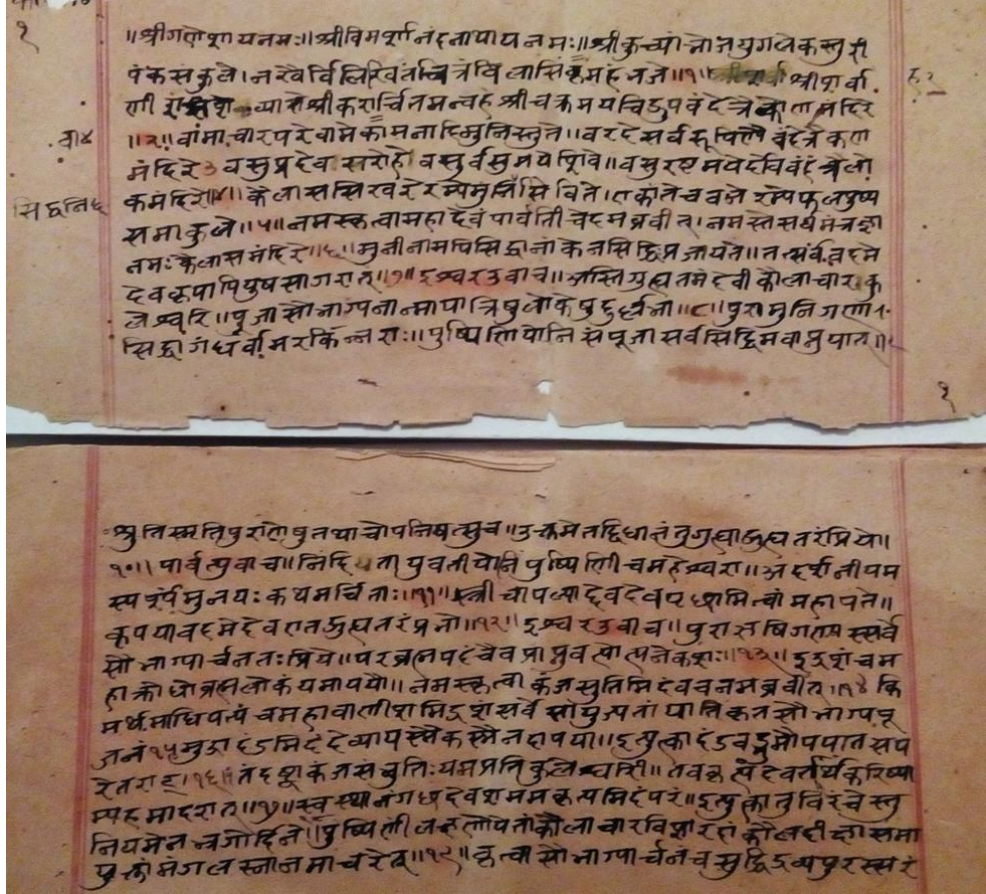 १
॥श्रीगणेशायनमः॥श्रीविमर्शानंदनाथायनमः॥श्रीकुच्यांभोजयुगलेकस्तुरी
पंकसंकुले।नखैर्विलिखितंचित्रंविलासिंकमहंभजे॥१॥ श्रीशर्वा
णी श्रीकरार्चितमन्वहं श्रीचक्रमयचिद्रूपवंदेत्रैलोक्यमंदिरे
॥२॥वामाचारपरेवामेकामनादिमुनिस्तुते॥वरदेसर्व वंदेत्रैलो
वा४
मंदिरे३ वसुप्रदेव सरोहे वसुर्वसुमयेशिवे॥वसुरष्टमयेदेविवंदेत्रैलो
सिद्धनिषे
कमंदिरे॥४॥कैलासशिखरेरम्येमुनिसिविते।एकांतेचवने रम्येफलपुष्प
समाकुले॥५॥नमस्कृत्वामहादेवंपार्वतीचेदमब्रवीत्।नमस्तेसर्वमंत्रज्ञा
नमःकैलासमंदिरे॥६॥मुनीनामपिसिद्धानांकेनसिद्धिप्रजायते॥तत्सर्वंवदमे
देवकृपापियुषसागरात्॥७॥ईश्वरउवाच॥अस्तिगुह्यतमंदेवीकौलाचारकु
लेश्वरि॥पूजासौभाग्यनाम्नायात्रिषुलोकेषुदुर्लभा॥८॥पुरामुनिगणा
सिद्धागंधर्वामरकिंन्नराः॥पुष्पिणियोनिसंपूजासर्वसिद्धिमवाप्नुयात्॥९
१
श्रुतिस्मृतिपुराणेषुतथाचोपनिषत्सुच॥उक्तमेतद्विधानंतुगुह्याद्गुह्यतरंप्रिये॥
१०॥पार्वत्युवाच॥निंदितायुवतीयोनिपुष्पिणीचमहेश्वरा॥अदर्शनीयम
स्पर्शमुनयःकथमर्चिताः॥११॥स्त्रीचापल्यादेवदेवपृछामित्वांमहापते॥
कृपयावदमेदेवएतद्गुह्यतरंप्रभो॥१२॥ईश्वरउवाच॥पुराऋषिगणास्सर्वे
सौभाग्यार्चनतःप्रिये॥परब्रह्मपदंचैवप्राप्नुवंत्यात्पनेकशः॥१३॥इदृशंचम
हाक्रोधोब्रह्मलोकंयमोपययौ॥नमस्कृत्वाकंजसुतिमिदंवचनमब्रवीत्।१४किं
मर्थमाधिपत्यंचमहावालीशमिदृशंसर्वेसायुज्यतांयांतिकृतसौभाग्यपू
जनं१५मुद्रादंडमिदंदेव्यायस्मैकस्मैनहापयौ॥इत्युत्कादंडवद्भूमौपपातसप
रेतराट्।१६॥तंदृष्ट्वाकंजसंभूतिःयमंप्रतिकुलेश्वरी॥तवकृत्यंदेवतार्थंकरिष्या
म्यहमादरात्॥१७॥स्वस्थानंगछदेवेशममकृत्यमिदंपरं॥इत्युत्कातुविरंचेस्तु
नियमेन पुष्पिणी कौलाचारविशारदां कौलदीक्षासमा
युक्तांमंगलस्नानमाचरेत्॥१९॥कृत्वासौभाग्यार्चनंचसुद्धिद्रव्यपुरस्सरं